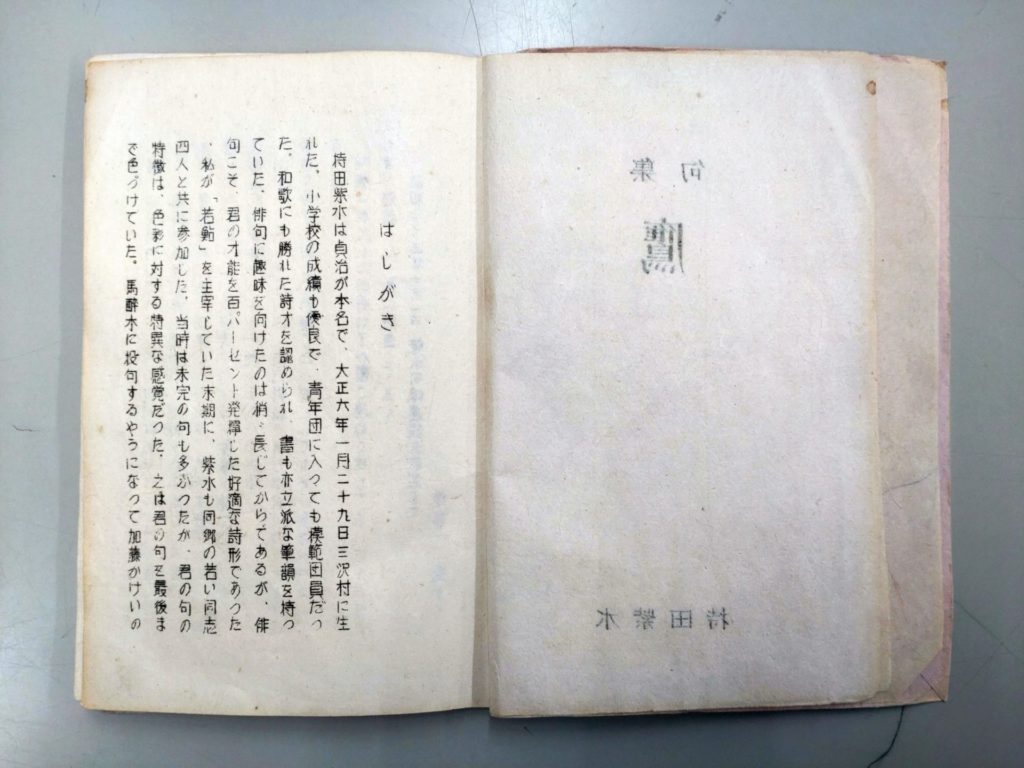 句集
鷹
持田紫水
はしがき
持田紫水は貞治が本名で、大正六年一月二十九日三沢村に生
れた。小学校の成績も優良で、青年団に入っても模範団員だっ
た。和歌にも勝れた詩才を認められ、書も亦立派な筆韻を持っ
ていた。俳句に趣味を向けたのは稍々長じてからであるが、俳
句こそ、君の才能を百パーセント発揮した好適な詩形であった
、私が「若鮎」を主宰していた末期に、紫水も同郷の若い同志
四人と共に参加した。当時は未完の句も多かつたが、君の句の
特徴は、色彩に対する特異な感覚だった。之は君の句を最後ま
で色づけていた。馬酔木に投句するやうになって加藤かけいの